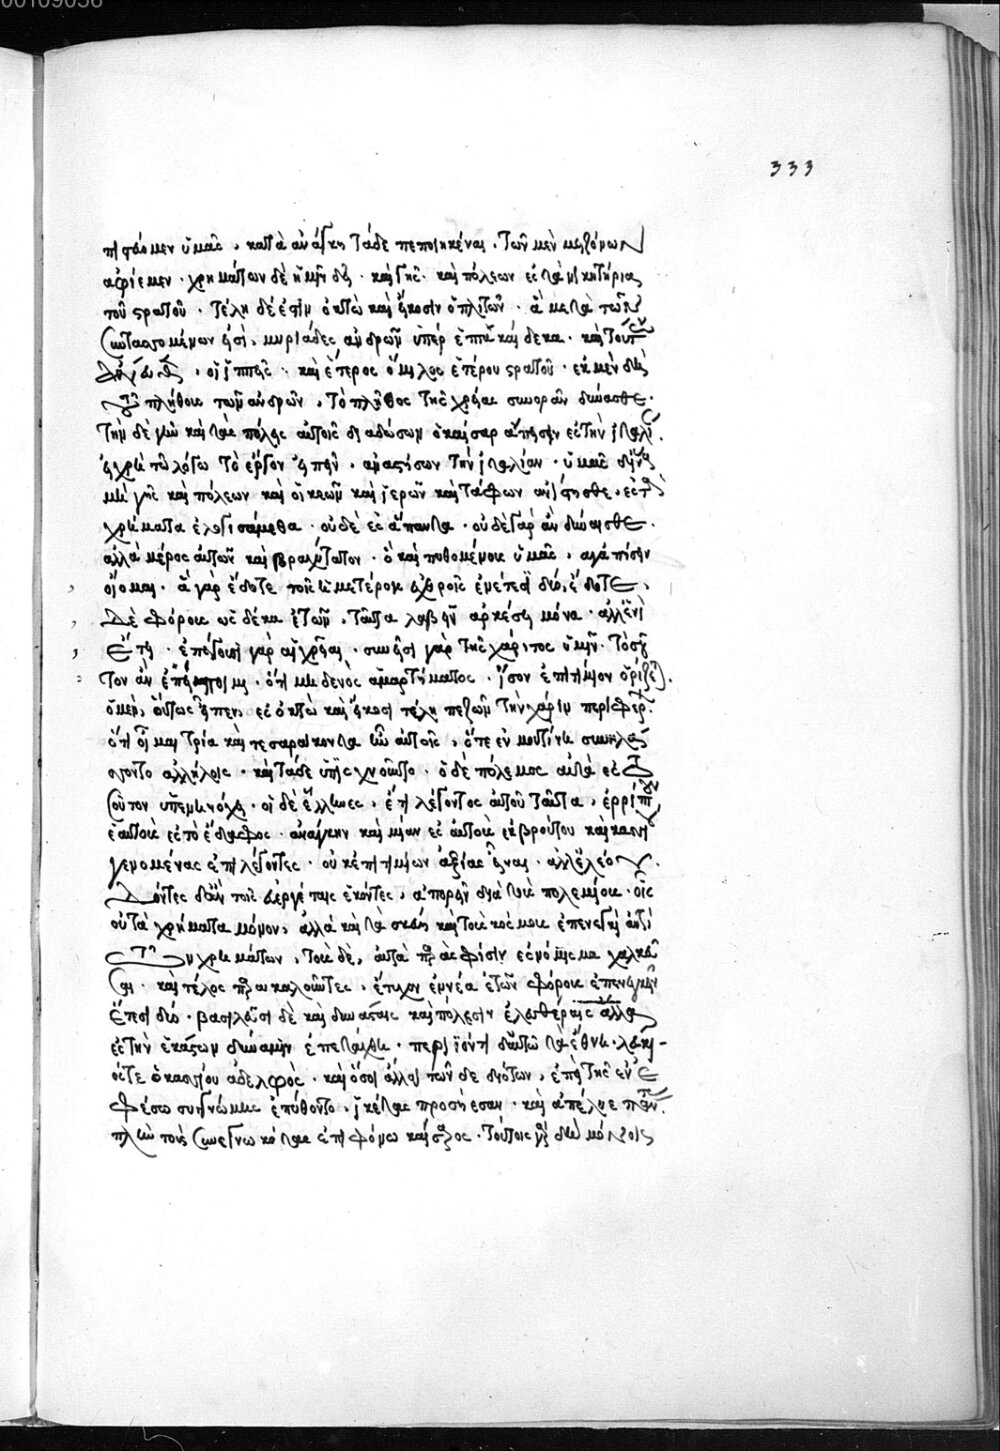 πισθῶμεν ὑμᾶς, κατὰ ἀνάγκην τάδε πεποιηκέναι, τῶν μὲν μειζόνων
ἀφίεμεν. χρημάτων δὲ ἡμῖν δεῖ. καὶ γῆς. καὶ πόλεων ἐς τὰ νικητήρια
τοῦ στρατοῦ. τέλη δέ ἐστιν ὀκτὼ καὶ εἴκοσιν ὁπλιτῶν. ἃ μετὰ τῶν
συντασσομένων εἰσὶ, μυριάδες ἀνδρῶν ὑπὲρ ἑπτὰ καὶ δεκα. καὶ τούτων
, οἱ ἱππεῖς. καὶ ἕτερος ὅμιλος ἑτέρου στρατοῦ. ἐκ μὲν δὴ
τοῦ πλήθους τῶν ἀνδρῶν, τὸ πλῆθος τῆς χρείας συνορᾶν δύνασθε.
τὴν δὲ γῆν καὶ τὰς πόλεις αὐτοῖς διαδώσων ὁ καῖσαρ ἄπεισιν ἐς τὴν ἰταλί.
εἰ χρὴ τῶ λόγω τὸ ἔργον εἰπεῖν. ἀναστήσων τὴν ἰταλίαν. ὑμᾶς δ' ἵνα
μὴ γῆς καὶ πόλεων καὶ οἰκιῶν καὶ ἱερῶν καὶ τάφων ἀνίστησθε, ἐς τὰ
χρήματα ἐλογισάμεθα. οὐδὲ ἐς ἅπαντα. οὐδὲ γὰρ ἂν δύναισθε.
ἀλλὰ μέρος αὐτῶν καὶ βραχύτατον. ὃ καὶ πυθομένους ὑμᾶς, ἀγαπήσειν
οἴομαι. ἃ γὰρ ἔδοτε τοῖς ἡμετέροις ἐχθροῖς ἐν ἔτεσι δύο, ἔδοτε,
δὲ φόρους ὡς δέκα ἐτῶν, ταῦτα λαβεῖν ἀρκέσει μόνα. ἀλλ' ἑνὶ
ἔτει. ἐπείγουσι γὰρ αἱ χρεῖαι. συνεῖσι γὰρ τῆς χάριτος ὑμῖν. τοσοῦ
τον ἂν ἐπείποιμι. ὅτι μηδενὸς ἁμαρτήματος. ἴσον ἐπιτίμιον ὁρίζει.
ὁ μὲν, οὕτως εἶπεν, ἐς ὀκτὼ καὶ εἴκοσι τέλη πεζῶν τὴν χάριν περιφέρ.
ὅτι οἶμαι τρία καὶ τεσσαράκοντα ἦν αὐτοῖς, ὅτε ἐν μουτίνη συνηλάσ
σοντο ἀλλήλοις. καὶ τάδε ὑπισχνοῦντο. ὁ δὲ πόλεμος αὐτὰ ἐς το
σοῦτον ὑπενηνόχει. οἱ δὲ ἕλληνες, ἔτι λέγοντος αὐτοῦ ταῦτα, ἐρρίπτουν
ἑαυτοὺς ἐς τὸ ἔδαφος. ἀνάγκην καὶ βίαν ἐς αὐτοὺς ἐκ βρούτου καὶ κασσί
γενομένας ἐπιλέγοντες. οὐκ ἐπιτιμίων ἀξίας εἶναι. ἀλλ' ἐλέου.
δόντες δ' ἂν τοῖς εὐεργέταις ἑκόντες, ἀπορεῖν διὰ τοὺς πολεμίους. οἷς
οὐ τὰ χρήματα μόνον, ἀλλὰ καὶ τὰ σκεύη καὶ τοὺς κόσμους ἐπενεγκεῖν ἀντὶ
τῶν χρημάτων, τοὺς δὲ, αὐτὰ παρὰ σφίσιν ἐς νόμισμα χαλκεῦ
σαι. καὶ τέλος παρακαλοῦντες, ἔτυχον ἐννέα ἐτῶν φόρους ἐπενεγκεῖν
ἔτεσι δύο. βασιλεῦσι δὲ καὶ δυνάσταις καὶ πόλεσιν ἐλευθέραις ἄλλα
ἐς τὴν ἑκάστων δύναμιν ἐπετάχθη. περιϊόντι δ' αὐτῶ τὰ ἔθνη. λεύκι-
ός τε ὁ κασσίου ἀδελφὸς. καὶ ὅσοι ἄλλοι τῶν δεδιότων, ἐπεὶ τῆς ἐν ἐ
φέσω συγγνώμης ἐπύθοντο, ἱκέται προσήεσαν. καὶ ἀπέλυε πάντας
πλὴν τοὺς συνεγνωκότας ἐπὶ φόνω καίσαρος. τούτοις γὰρ δὴ μόνοις